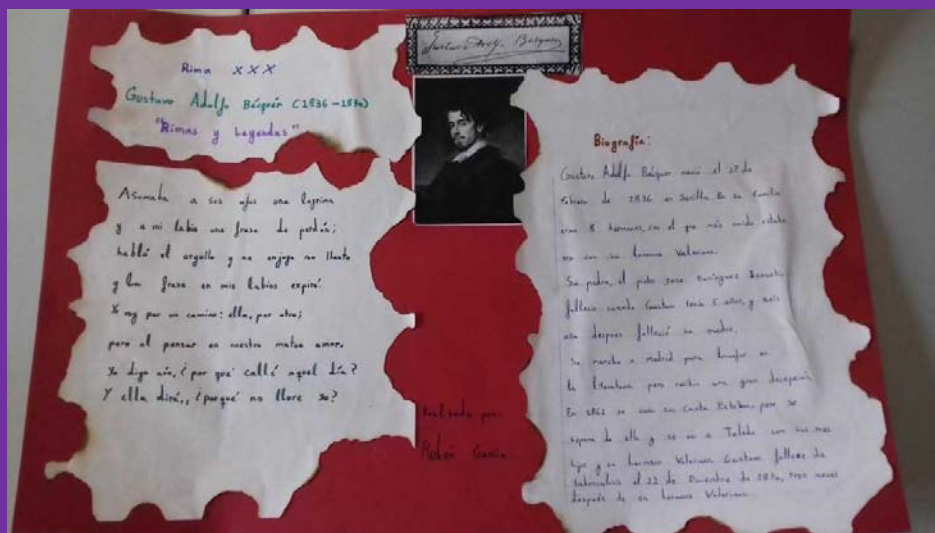 Gustavo Adolf. Becquer
Rima XXX
Gustavo Adolfo Bécquer (1836-1870)
"Rimas y Leyendas"
Asomaba a sus ojos una lagrima
y a mi labio una frase de perdón;
habló el orgullo y se enjugo su llanto
y la frase en mis labios expiró.
Yo voy por un camino: ella, por otro;
pero al pensar en nuestro mutuo amor.
Yo digo aún, ¿por qué callé aquel día?
Y ella dirá,, ¿porqué no llore yo?
Realizado por:
Rubén García
Biografía:
Gustavo Adolfo Bécquer nació el 17 de
febrero de 1836 en Sevilla. En su familia
eran 8 hermanos, con el que más unido estaba
era con su hermano Valeriano.
Su padre, el pintor José Domínguez
falleció cuando Gustavo tenía 5 años, y seis
años después falleció su madre.
Se marcho a Madrid para triunfar en
la literatura pero recibio una gran decepción
En 1861 se casó con Casta Esteban, pero se
separa de ella y se va a Toledo con sus tres
hijos y su hermano Valeriano. Gustavo fallece de
tuberculosis el 22 de Diciembre de 1870, tres meses
después de su hermano Valeriano.